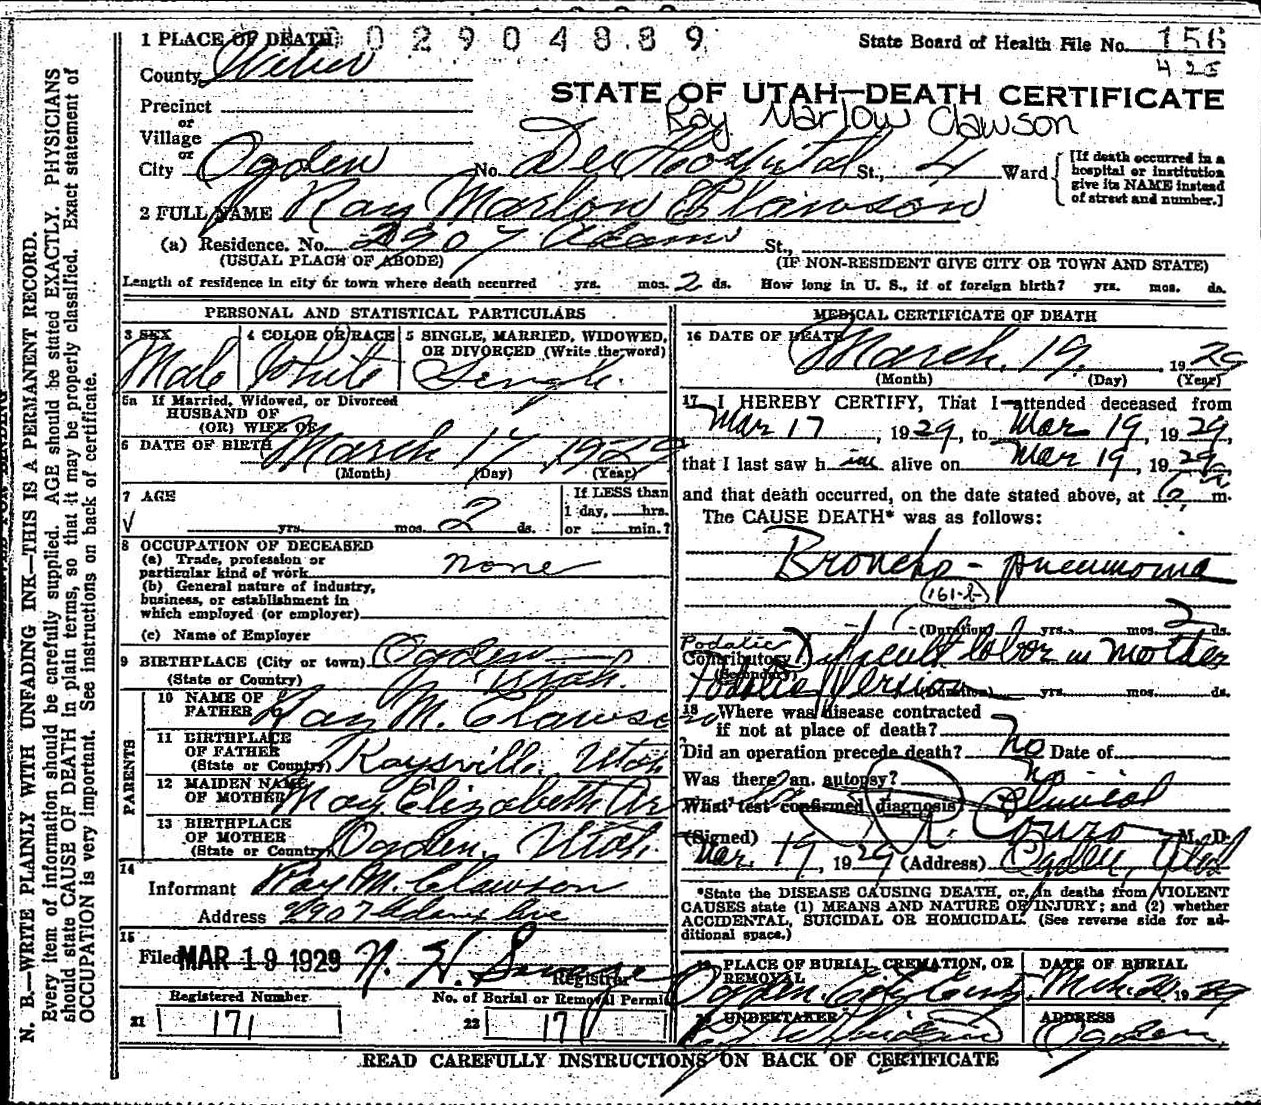 0 0 2 9 0 4 8 8 9
1 PLACE OF DEATH
State Board of Health File No. 156
426
County Weber
STATE OF UTAH—DEATH CERTIFICATE
Precinct
or
Ray Marlow Clawson
Village
or
City Ogden No. Dee Hospital St., 4 Ward
[If death occurred in a hospital or institution give its NAME instead of street and number.]
2 FULL NAME Ray Marlow Clawson
(a) Residence. No. 2907 Adams St.,
(USUAL PLACE OF ABODE) (IF NON-RESIDENT GIVE CITY OR TOWN AND STATE)
Length of residence in city or town where death occurred yrs. mos. 2 ds. How long in U. S., if of foreign birth? yrs. mos. ds.
PERSONAL AND STATISTICAL PARTICULARS
3 SEX Male
4 COLOR OR RACE White
5 SINGLE, MARRIED, WIDOWED, OR DIVORCED (Write the word) Single
5a If Married, Widowed, or Divorced
HUSBAND OF
(OR) WIFE OF
6 DATE OF BIRTH March 17, 1929
(Month) (Day) (Year)
7 AGE
yrs. mos. 2 ds.
If LESS than
1 day, hrs.
or min.?
8 OCCUPATION OF DECEASED
(a) Trade, profession or
particular kind of work none
(b) General nature of industry,
business, or establishment in
which employed (or employer)
(c) Name of Employer
9 BIRTHPLACE (City or town) Ogden
(State or Country) Utah.
PARENTS
10 NAME OF
FATHER Ray M. Clawson
11 BIRTHPLACE
OF FATHER
(State or Country) Kaysville, Utah
12 MAIDEN NAME
OF MOTHER May Elizabeth
13 BIRTHPLACE
OF MOTHER
(State or Country) Ogden, Utah
14
Informant Ray M. Clawson
Address 2907 Adams Ave
15
Filed MAR 19 1929 N. H. Savage
Registrar
Registered Number No. of Burial or Removal Permit
21 171 22 171
MEDICAL CERTIFICATE OF DEATH
16 DATE OF DEATH March, 19, 1929
(Month) (Day) (Year)
17 I HEREBY CERTIFY, That I attended deceased from
Mar 17, 1929, to Mar 19, 1929,
that I last saw h im alive on Mar 19, 1929,
and that death occurred, on the date stated above, at 6 m.
The CAUSE DEATH* was as follows:
Broncho-pneumonia
161-b
(Duration) yrs. mos. 2 ds.
Podalic
Contributory Difficult labor in mother
(Secondary)
Podalic Version (Duration) yrs. mos. ds.
18 Where was disease contracted
if not at place of death?
Did an operation precede death? No Date of
Was there an autopsy? no
What test confirmed diagnosis? Clinical
(Signed) M. D.
Mar. 19, 1929 (Address) Ogden, Utah
*State the DISEASE CAUSING DEATH, or, in deaths from VIOLENT
CAUSES state (1) MEANS AND NATURE OF INJURY; and (2) whether
ACCIDENTAL, SUICIDAL OR HOMICIDAL. (See reverse side for ad-
ditional space.)
19 PLACE OF BURIAL, CREMATION, OR REMOVAL
Ogden City Cemty.
DATE OF BURIAL
1929
20 UNDERTAKER
ADDRESS
Ogden
READ CAREFULLY INSTRUCTIONS ON BACK OF CERTIFICATE
N. B.—WRITE PLAINLY WITH UNFADING INK—THIS IS A PERMANENT RECORD.
Every item of information should be carefully supplied. AGE should be stated EXACTLY. PHYSICIANS
should state CAUSE OF DEATH in plain terms, so that it may be properly classified. Exact statement of
OCCUPATION is very important. See instructions on back of certificate.